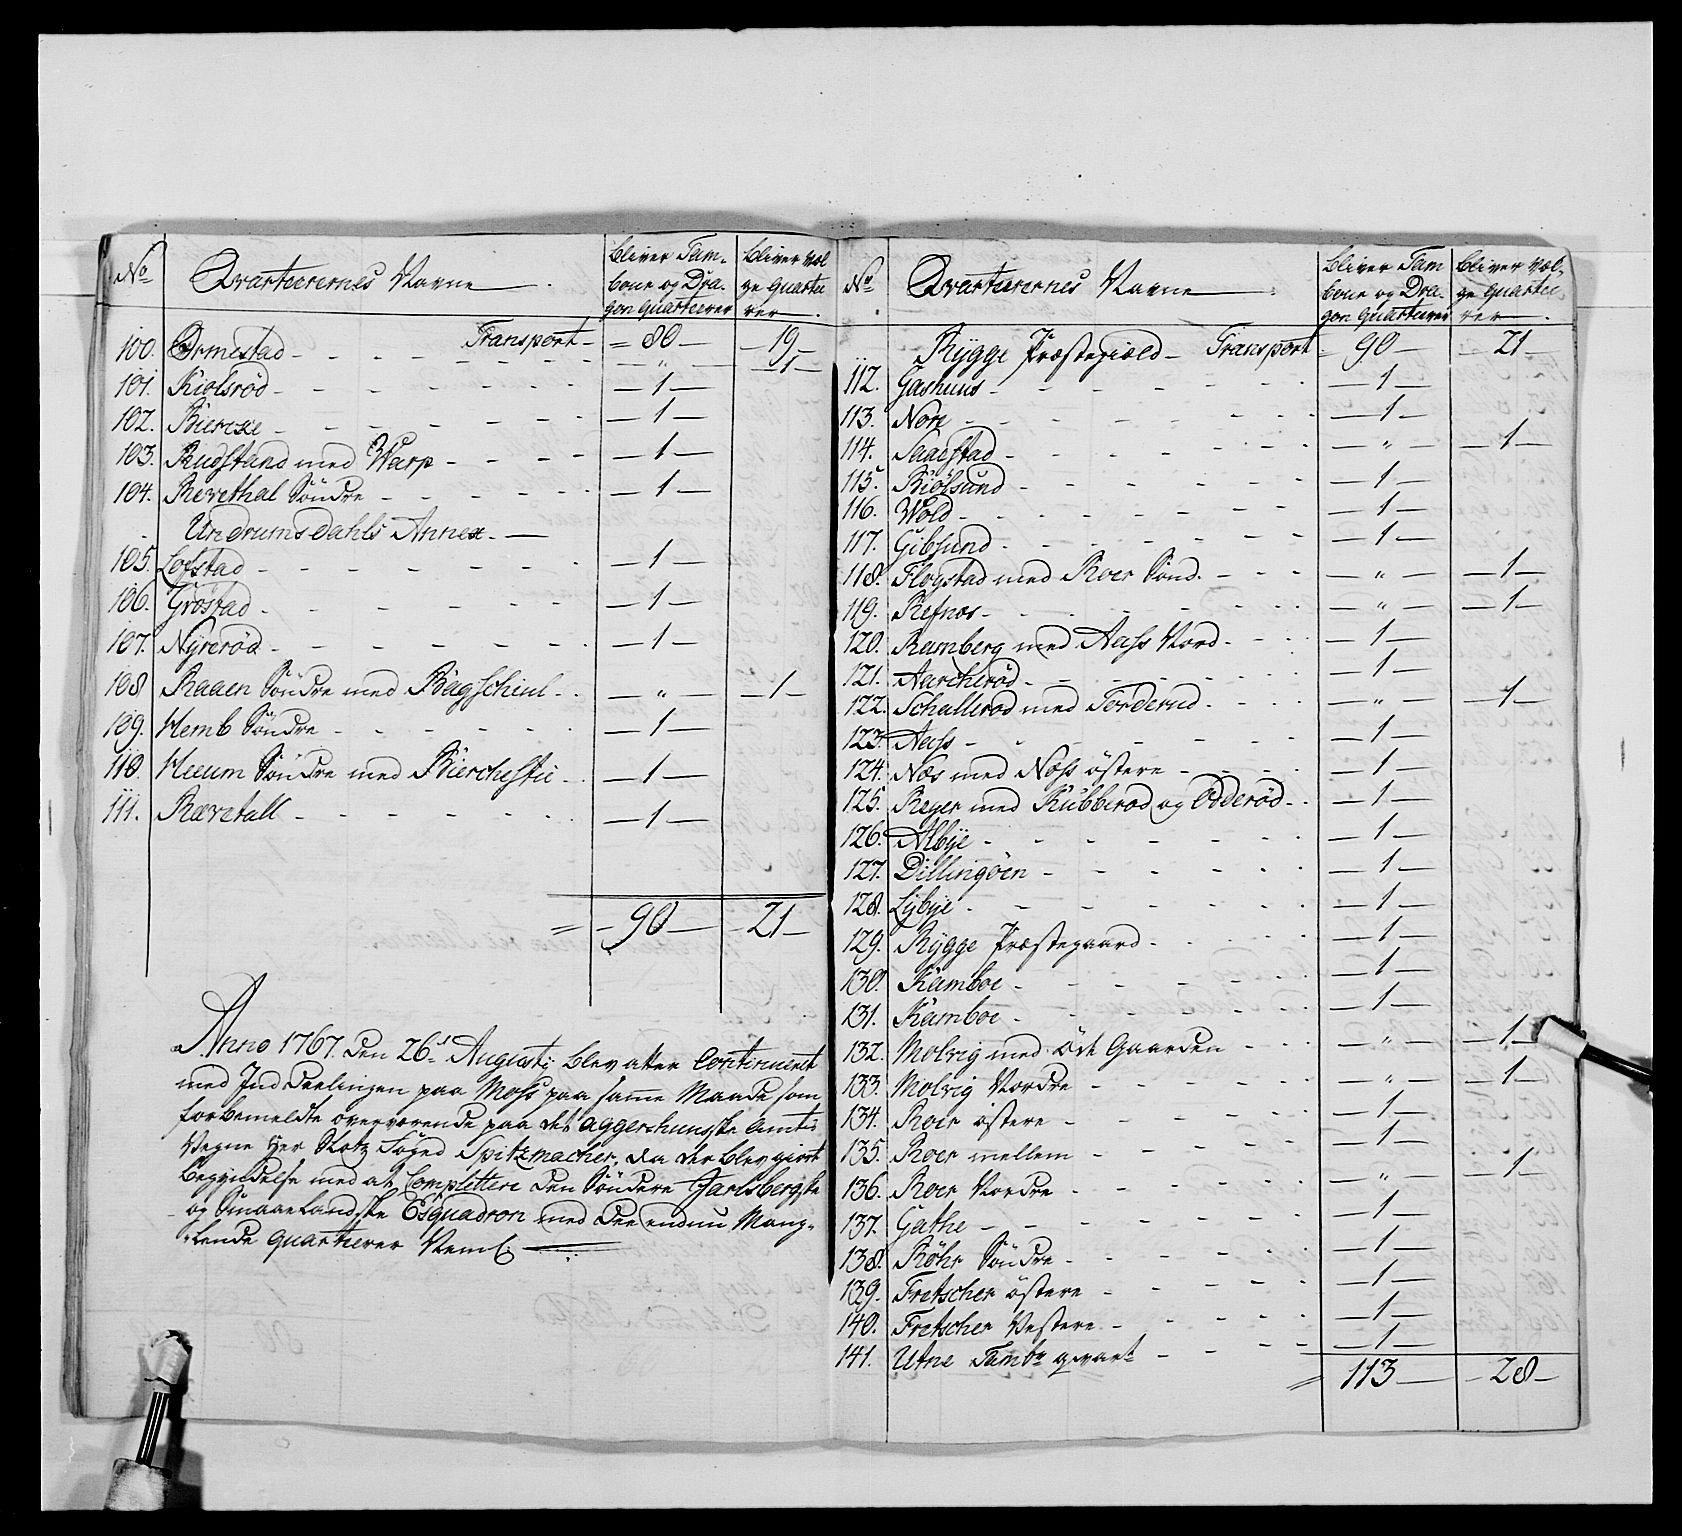 No Qvarteerernes Navne bliver Tam- bliver Væl
boue og Dra- ge Quartee
gon Quarteerer rer
Transport 80 19
100. Ormestad " 1
101. Kiolsrød 1
102. Bierexe 1
103. Rudstand med Warp 1
104. Revethal Søndre 1
Undrumsdahls Annex
105. Lofstad 1
106. Grøstad 1
107. Nyrerød 1
108 Raaen Søndre med Bagschiul " 1
109. Hemb Søndre 1
110. Heeum Søndre med Bierchestie 1
111. Rævetall 1
= 90 21
Anno 1767. den 26de Augusti blev atter Continueret
med Inddeelingen paa Moss paa samme Maade som
forbemeldte overværende paa det Aggershuusske Amts
Vegne Her Slotz Foged Spitzmacher, da der blev giort
begyndelse med at Complettere den Søndere Jarlsbergske
og Smaalandske Esquadron med dee endnu Mang-
lende Quarteerer Neml:
No Qvarteerernes Navne bliver Tam bliver Væl-
boue og Dra- ge Quartee
gon Quarteerer rer
Rygge Præstegiæld Transport 90 21
112. Gashuus 1
113. Nore 1
114. Saaestad " 1
115. Biølsund 1
116. Wold 1
117. Gibsund 1
118. Floystad med Roer Sønd. " 1
119. Refnos " 1
120. Ramberg med Aass Nord 1
121. Aarcherød 1
122. Schallerød med Torderud " 1
123. Aass 1
124. Nos med Noss østere 1
125. Reger med Kubberød og Odderød 1
126. Albye 1
127. Dillingøen 1
128. Lybye 1
129. Rygge Præstegaard 1
130. Kamboe 1
131. Kamboe 1
132. Molvig med Øde Gaarden " 1
133. Molvig Nordre " 1
134. Roer østere 1
135. Roer mellem 1
136. Roer Nordre " 1
137. Gathe 1
138. Røhr Søndre 1
139. Fretscher østere 1
140. Fretscher Vestere 1
141. Utne Tambr qvart 1
= 113 28